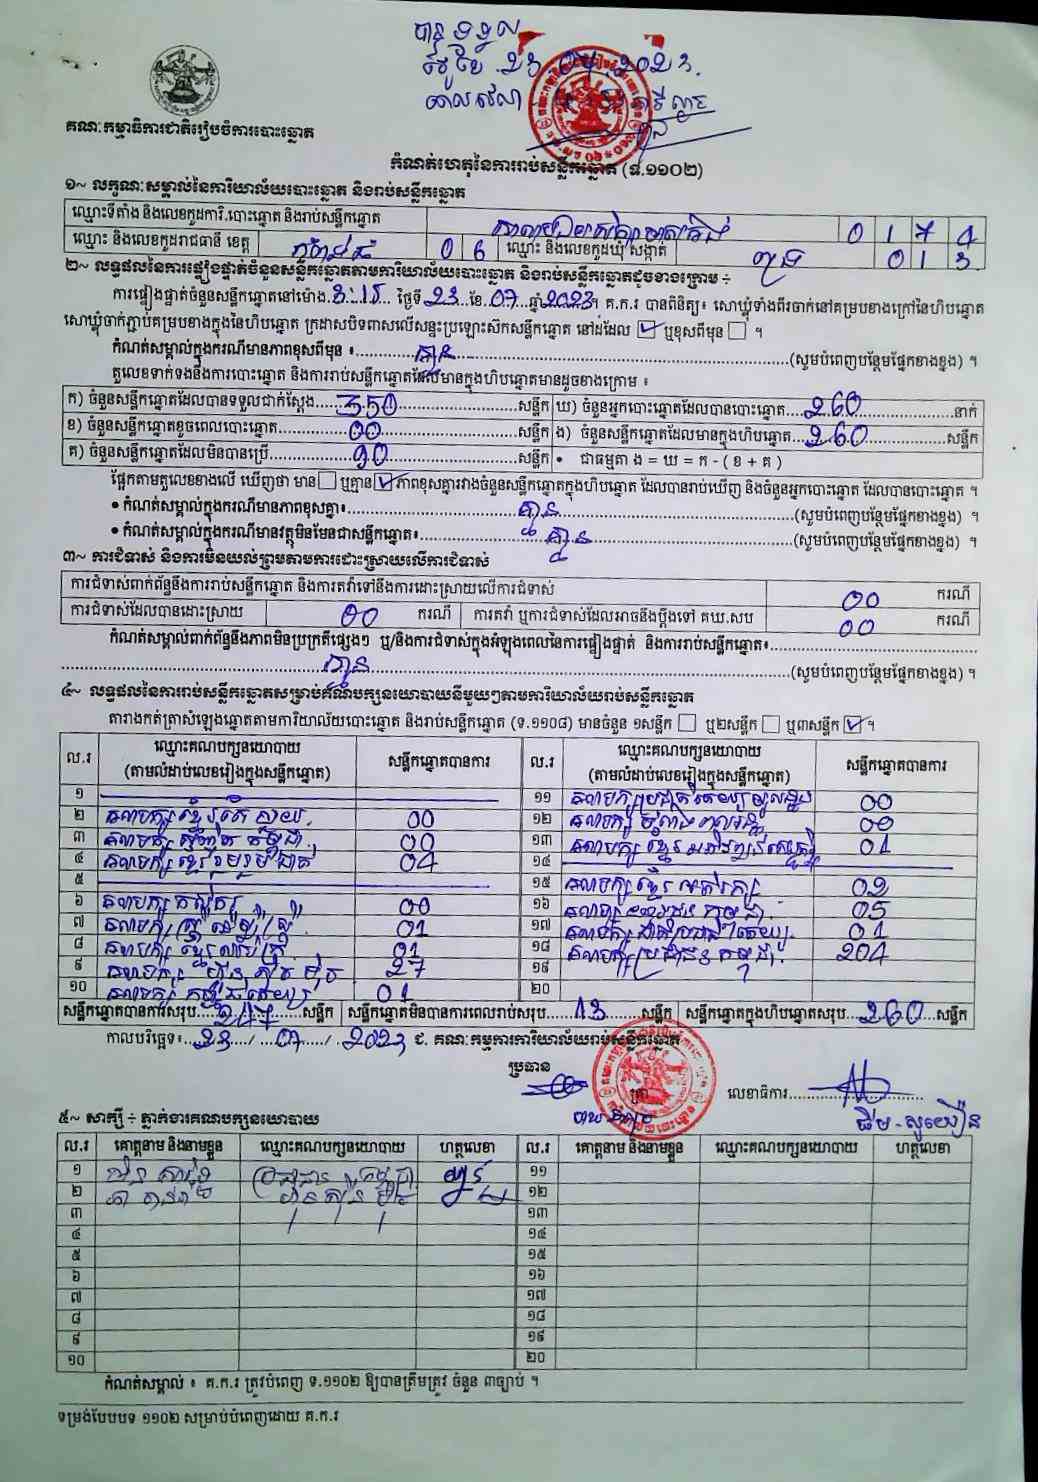 បានទទួល
ថ្ងៃទី 23.07.2023.
វេលា
គណៈកម្មាធិការជាតិរៀបចំការបោះឆ្នោត
កំណត់ហេតុនៃការរាប់សន្លឹកឆ្នោត (ទ.១១០២)
១~ លក្ខណៈសម្គាល់នៃការិយាល័យបោះឆ្នោត និងរាប់សន្លឹកឆ្នោត
ឈ្មោះទីតាំង និងលេខកូដការិ.បោះឆ្នោត និងរាប់សន្លឹកឆ្នោត 0 1 7 4
ឈ្មោះ និងលេខកូដរាជធានី ខេត្ត កំពង់ធំ 0 6 ឈ្មោះ និងលេខកូដឃុំ សង្កាត់ 0 1 3
២~ លទ្ធផលនៃការផ្ទៀងផ្ទាត់ចំនួនសន្លឹកឆ្នោតតាមការិយាល័យបោះឆ្នោត និងរាប់សន្លឹកឆ្នោតដូចខាងក្រោម ÷
ការផ្ទៀងផ្ទាត់ចំនួនសន្លឹកឆ្នោតនៅម៉ោង 3:15 ថ្ងៃទី 23 ខែ 07 ឆ្នាំ 2023។ គ.ក.រ បានពិនិត្យ៖ សោឃ្លុំទាំងពីរចាក់នៅគម្របខាងក្រៅនៃហិបឆ្នោត
សោឃ្លុំចាក់ភ្ជាប់គម្របខាងក្នុងនៃហិបឆ្នោត ក្រដាសបិទពាសលើសន្ទះប្រឡោះស៊កសន្លឹកឆ្នោត នៅដដែល ☑ ឬខុសពីមុន ☐ ។
កំណត់សម្គាល់ក្នុងករណីមានភាពខុសពីមុន ៖ គ្មាន (សូមបំពេញបន្ថែមផ្នែកខាងខ្នង) ។
តួលេខទាក់ទងនឹងការបោះឆ្នោត និងការរាប់សន្លឹកឆ្នោតដែលមានក្នុងហិបឆ្នោតមានដូចខាងក្រោម ៖
ក) ចំនួនសន្លឹកឆ្នោតដែលបានទទួលជាក់ស្តែង 350 សន្លឹក ឃ) ចំនួនអ្នកបោះឆ្នោតដែលបានបោះឆ្នោត 260 នាក់
ខ) ចំនួនសន្លឹកឆ្នោតខូចពេលបោះឆ្នោត 00 សន្លឹក ង) ចំនួនសន្លឹកឆ្នោតដែលមានក្នុងហិបឆ្នោត 260 សន្លឹក
គ) ចំនួនសន្លឹកឆ្នោតដែលមិនបានប្រើ 90 សន្លឹក • ជាធម្មតា ង = ឃ = ក - ( ខ + គ )
ផ្អែកតាមតួលេខខាងលើ ឃើញថា មាន ☐ ឬគ្មាន ☑ ភាពខុសគ្នារវាងចំនួនសន្លឹកឆ្នោតក្នុងហិបឆ្នោត ដែលបានរាប់ឃើញ និងចំនួនអ្នកបោះឆ្នោត ដែលបានបោះឆ្នោត ។
• កំណត់សម្គាល់ក្នុងករណីមានភាពខុសគ្នា៖ គ្មាន (សូមបំពេញបន្ថែមផ្នែកខាងខ្នង) ។
• កំណត់សម្គាល់ក្នុងករណីមានវត្ថុមិនមែនជាសន្លឹកឆ្នោត៖ គ្មាន (សូមបំពេញបន្ថែមផ្នែកខាងខ្នង) ។
៣~ ការជំទាស់ និងការមិនយល់ព្រមតាមការដោះស្រាយលើការជំទាស់
ការជំទាស់ពាក់ព័ន្ធនឹងការរាប់សន្លឹកឆ្នោត និងការតវ៉ាទៅនឹងការដោះស្រាយលើការជំទាស់ 00 ករណី
ការជំទាស់ដែលបានដោះស្រាយ 00 ករណី ការតវ៉ា ឬការជំទាស់ដែលអាចនឹងប្តឹងទៅ គឃ.សប 00 ករណី
កំណត់សម្គាល់ពាក់ព័ន្ធនឹងភាពមិនប្រក្រតីផ្សេងៗ ឬ/និងការជំទាស់ក្នុងអំឡុងពេលនៃការផ្ទៀងផ្ទាត់ និងការរាប់សន្លឹកឆ្នោត៖
គ្មាន (សូមបំពេញបន្ថែមផ្នែកខាងខ្នង) ។
៤~ លទ្ធផលនៃការរាប់សន្លឹកឆ្នោតសម្រាប់គណបក្សនយោបាយនីមួយៗតាមការិយាល័យរាប់សន្លឹកឆ្នោត
តារាងកត់ត្រាសំឡេងឆ្នោតតាមការិយាល័យបោះឆ្នោត និងរាប់សន្លឹកឆ្នោត (ទ.១១០៨) មានចំនួន ១សន្លឹក ☐ ឬ២សន្លឹក ☐ ឬ៣សន្លឹក ☑ ។
ល.រ ឈ្មោះគណបក្សនយោបាយ (តាមលំដាប់លេខរៀងក្នុងសន្លឹកឆ្នោត) សន្លឹកឆ្នោតបានការ ល.រ ឈ្មោះគណបក្សនយោបាយ (តាមលំដាប់លេខរៀងក្នុងសន្លឹកឆ្នោត) សន្លឹកឆ្នោតបានការ
១ ១១ គណបក្ស 00
២ គណបក្ស 00 ១២ គណបក្ស 00
៣ គណបក្ស 00 ១៣ គណបក្ស ខ្មែរ 01
៤ គណបក្ស ខ្មែររួបរួមជាតិ 04 ១៤
៥ ១៥ គណបក្ស ខ្មែរ 02
៦ គណបក្ស កសិករ 00 ១៦ គណបក្ស កម្ពុជា 05
៧ គណបក្ស 01 ១៧ គណបក្ស 01
៨ គណបក្ស ខ្មែរ 01 ១៨ គណបក្សប្រជាជនកម្ពុជា 204
៩ គណបក្ស ហ៊្វុនស៊ិនប៉ិច 27 ១៩
១០ គណបក្ស 01 ២០
សន្លឹកឆ្នោតបានការសរុប 247 សន្លឹក សន្លឹកឆ្នោតមិនបានការពេលរាប់សរុប 13 សន្លឹក សន្លឹកឆ្នោតក្នុងហិបឆ្នោតសរុប 260 សន្លឹក
កាលបរិច្ឆេទ៖ 23 / 07 / 2023 ជ. គណៈកម្មការការិយាល័យរាប់សន្លឹកឆ្នោត
ប្រធាន
លេខាធិការ
៥~ សាក្សី ÷ ភ្នាក់ងារគណបក្សនយោបាយ
ល.រ គោត្តនាម និងនាមខ្លួន ឈ្មោះគណបក្សនយោបាយ ហត្ថលេខា ល.រ គោត្តនាម និងនាមខ្លួន ឈ្មោះគណបក្សនយោបាយ ហត្ថលេខា
១ ប្រជាជនកម្ពុជា ១១
២ ហ៊្វុនស៊ិនប៉ិច ១២
៣ ១៣
៤ ១៤
៥ ១៥
៦ ១៦
៧ ១៧
៨ ១៨
៩ ១៩
១០ ២០
កំណត់សម្គាល់ ៖ គ.ក.រ ត្រូវបំពេញ ទ.១១០២ ឱ្យបានត្រឹមត្រូវ ចំនួន ៣ច្បាប់ ។
ទម្រង់បែបបទ ១១០២ សម្រាប់បំពេញដោយ គ.ក.រ